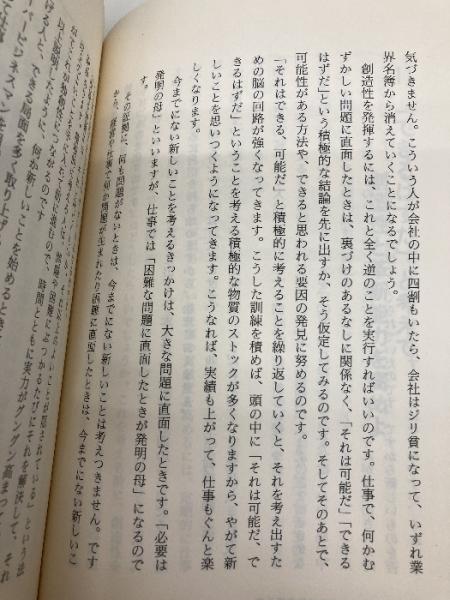 気づきません。こういう人が会社の中に四割もいたら、会社はジリ貧になって、いずれ業
界名簿から消えていくことになるでしょう。
創造性を発揮するには、これと全く逆のことを実行すればいいのです。仕事で、何かむ
ずかしい問題に直面したときは、裏づけのあるなしに関係なく、「それは可能だ」「できる
はずだ」という積極的な結論を先に出すか、そう仮定してみるのです。そしてそのあとで、
可能性がある方法や、できると思われる要因の発見に努めるのです。
「それはできる、可能だ」と積極的に考えることを繰り返していくと、それを考え出すた
めの脳の回路が強くなってきます。こうした訓練を積めば、頭の中に「それは可能だ、で
きるはずだ」ということを考える積極的な物質のストックが多くなりますから、やがて新
しいことを思いつくようになってきます。こうなれば、実績も上がって、仕事もぐんと楽
しくなります。
今までにない新しいことを考えるきっかけは、大きな問題に直面したときです。「必要は
発明の母」といいますが、仕事では「困難な問題に直面したときが発明の母」になるので
す。
その証拠に、何も問題がないときは、今までにない新しいことは考えつきません。です
から、経営や仕事で何か問題が生まれたり困難に直面したときは、今までにない新しいこ